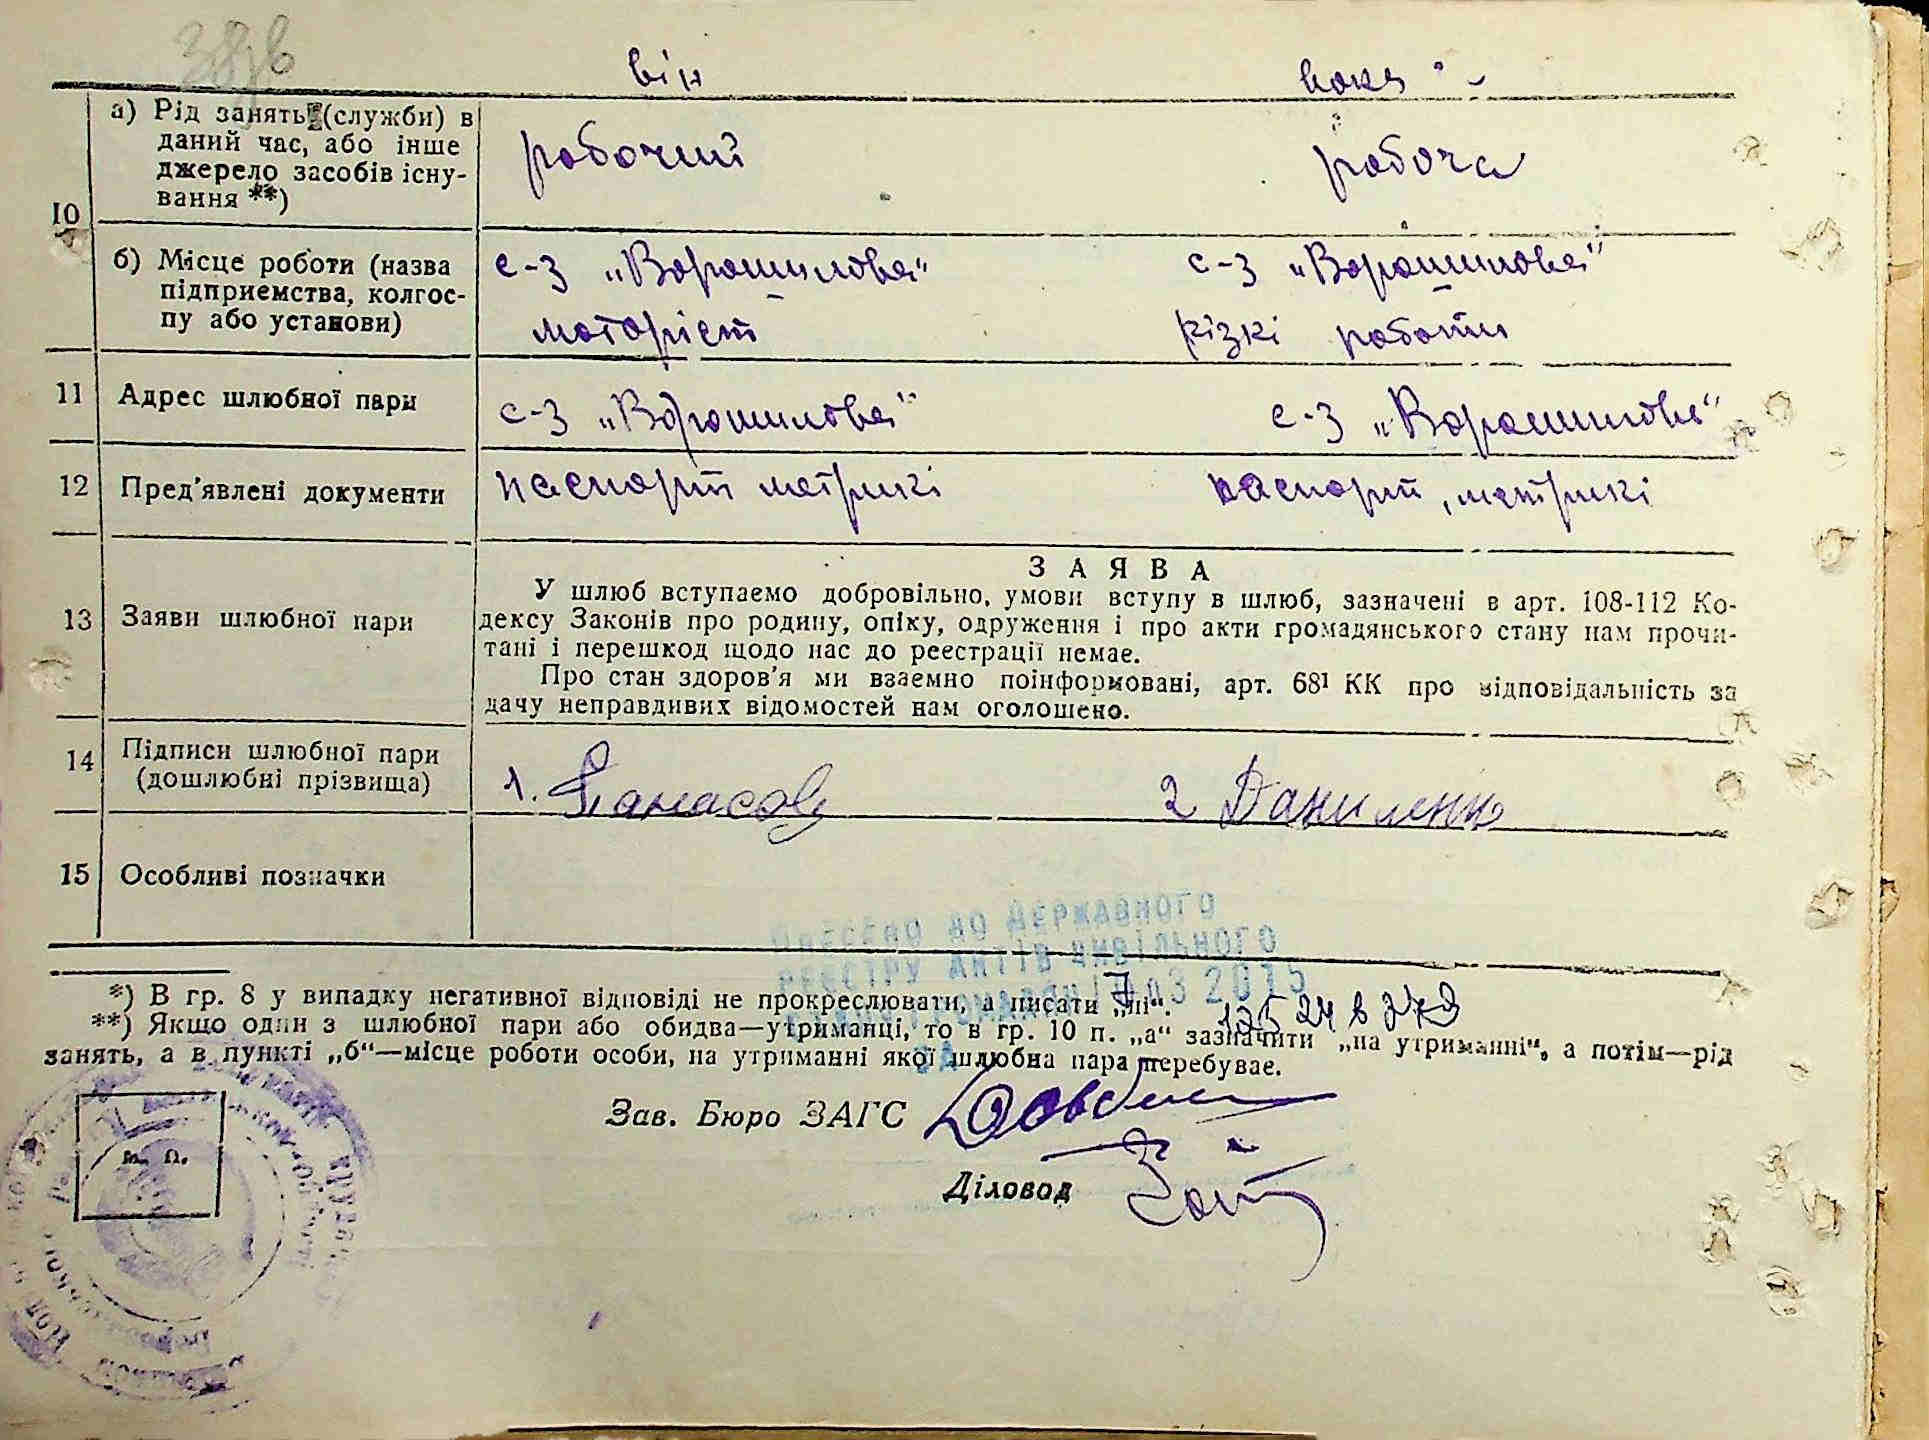 він вона
10
а) Рід занять (служби) в
даний час, або інше
джерело засобів існу-
вання **)
робочий робоча
б) Місце роботи (назва
підприємства, колгос-
пу або установи)
с-з „Ворошилова“ с-з „Ворошилова“
моторіст різкі роботи
11 Адрес шлюбної пари с-з „Ворошилова“ с-з „Ворошилова“
12 Пред'явлені документи паспорт метрикі паспорт, метрикі
13 Заяви шлюбної пари
ЗАЯВА
У шлюб вступаємо добровільно, умови вступу в шлюб, зазначені в арт. 108-112 Ко-
дексу Законів про родину, опіку, одруження і про акти громадянського стану нам прочи-
тані і перешкод щодо нас до реєстрації немає.
Про стан здоров'я ми взаємно поінформовані, арт. 68¹ КК про відповідальність за
дачу неправдивих відомостей нам оголошено.
14 Підписи шлюбної пари
(дошлюбні прізвища)
1. Панасов 2 Даниленко
15 Особливі позначки
ВНЕСЕНО ДО ДЕРЖАВНОГО
РЕЄСТРУ АКТІВ ЦИВІЛЬНОГО
2015
*) В гр. 8 у випадку негативної відповіді не прокреслювати, а писати „ні“.
**) Якщо один з шлюбної пари або обидва—утриманці, то в гр. 10 п. „а“ зазначити „на утриманні“, а потім—рід
занять, а в пункті „б“—місце роботи особи, на утриманні якої шлюбна пара перебуває.
м. п.
Зав. Бюро ЗАГС
Діловод